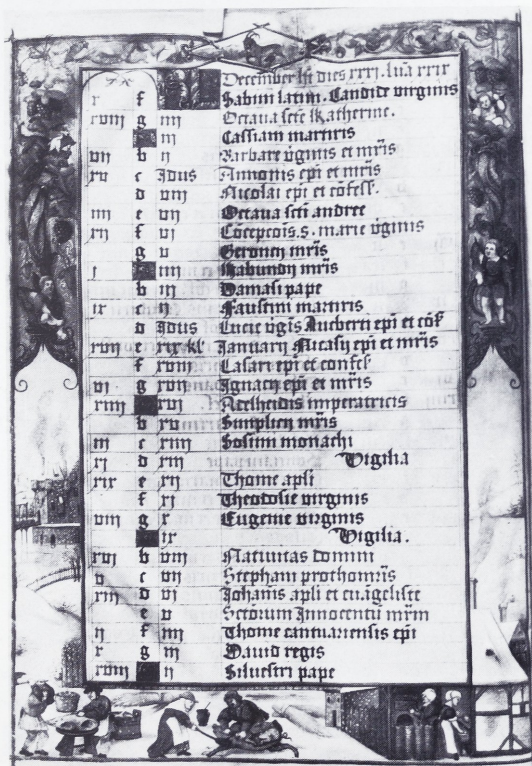 December hꝫ dies xxxj. luā xxix
x f Sabini latini. Candide virginis
xviij g iiij Octaua scē Katherine.
iij Cassiani martiris
vij b ij Barbare v̄ginis et mr̄is
xv c Jdus Annonis epi et mr̄is
d viij Nicolai epi et cōfess.
iiij e vij Octaua scī andree
xij f vj Cōcepcōis. s. marie v̄ginis
g v mr̄is
j iiij mr̄is
b iij Damasi pape
ix c ij Faustini martiris
d Jdus Lucie v̄gīs Aucberti epi et cōf
xvij e xix kl' Januarij Nicasij epi et mr̄is
f xviij epi et confess
vj g xvij Jgnacij epi et mr̄is
xiiij xvj Adelheidis imperatricis
b xv Simplicij mr̄is
iij c xiiij Sosimi monachi
xj d xiij Vigilia
xix e xij Thome apli
f xj Theodosie virginis
viij g x Eugenie virginis
ix Vigilia.
xvj b viij Natiuitas domini
v c vij Stephani prothomr̄is
xiij d vj Johanis apli et eu.igeliste
e v Sctōrum Jnnocentū mr̄m
ij f iiij Thome cantuariensis epi
x g iij Dauid regis
xviij ij Siluestri pape